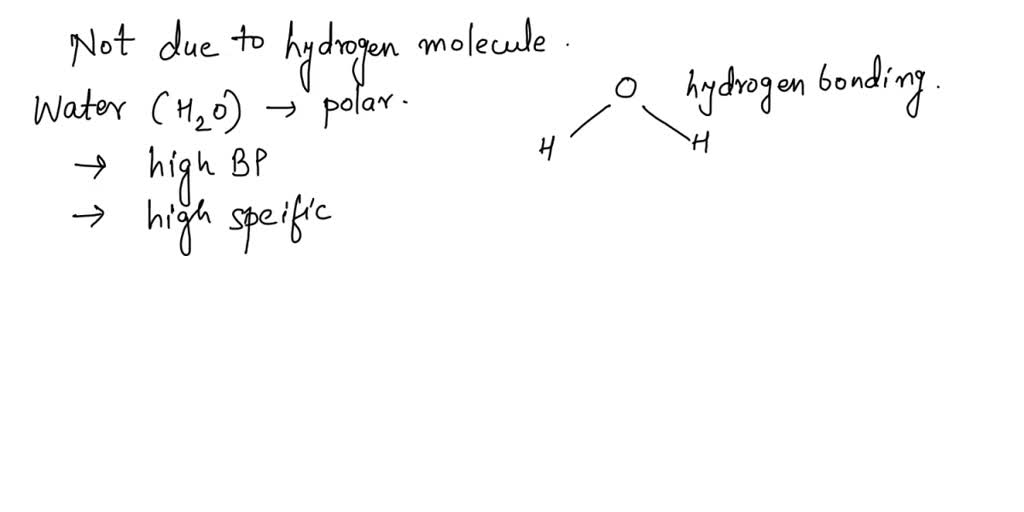 Not due to hydrogen molecule.
Water (H₂O) → polar.
→ high BP
→ high speific
O
H
H
hydrogen bonding.